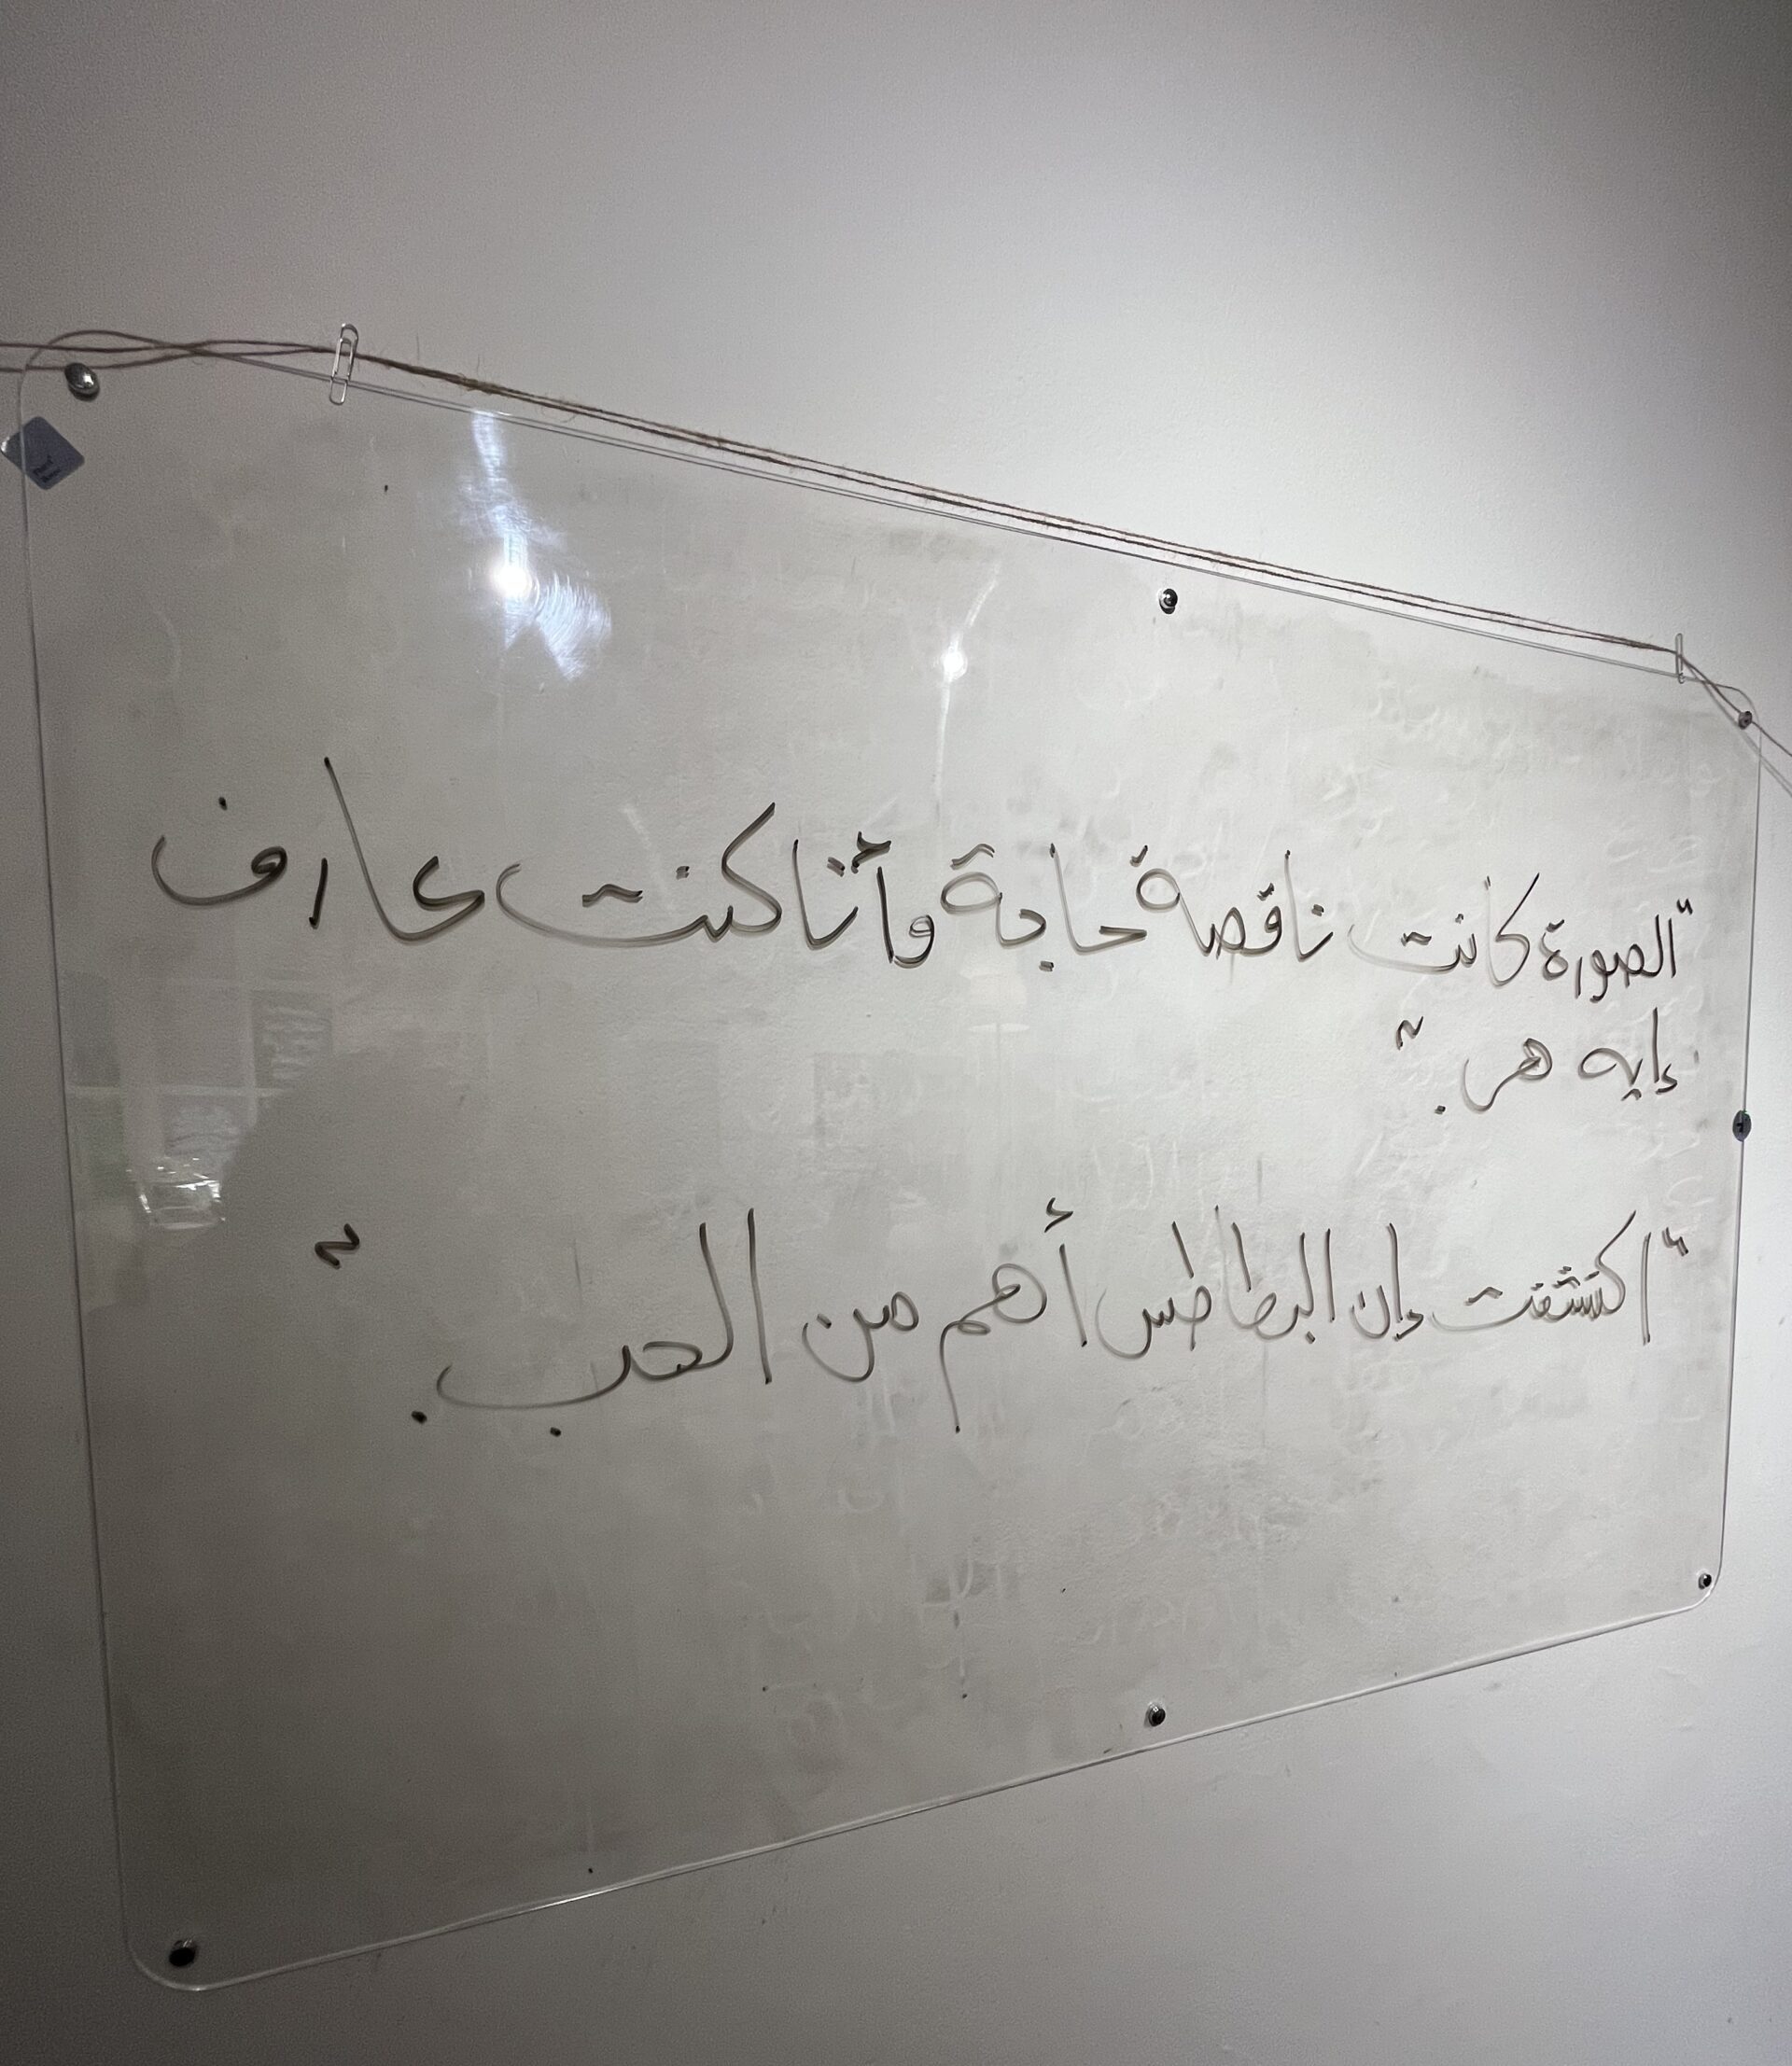 "الصورة كانت ناقصة حاجة وأنا كنت عارف
إيه هى."
"اكتشفت إن البطاطس أهم من الحب."